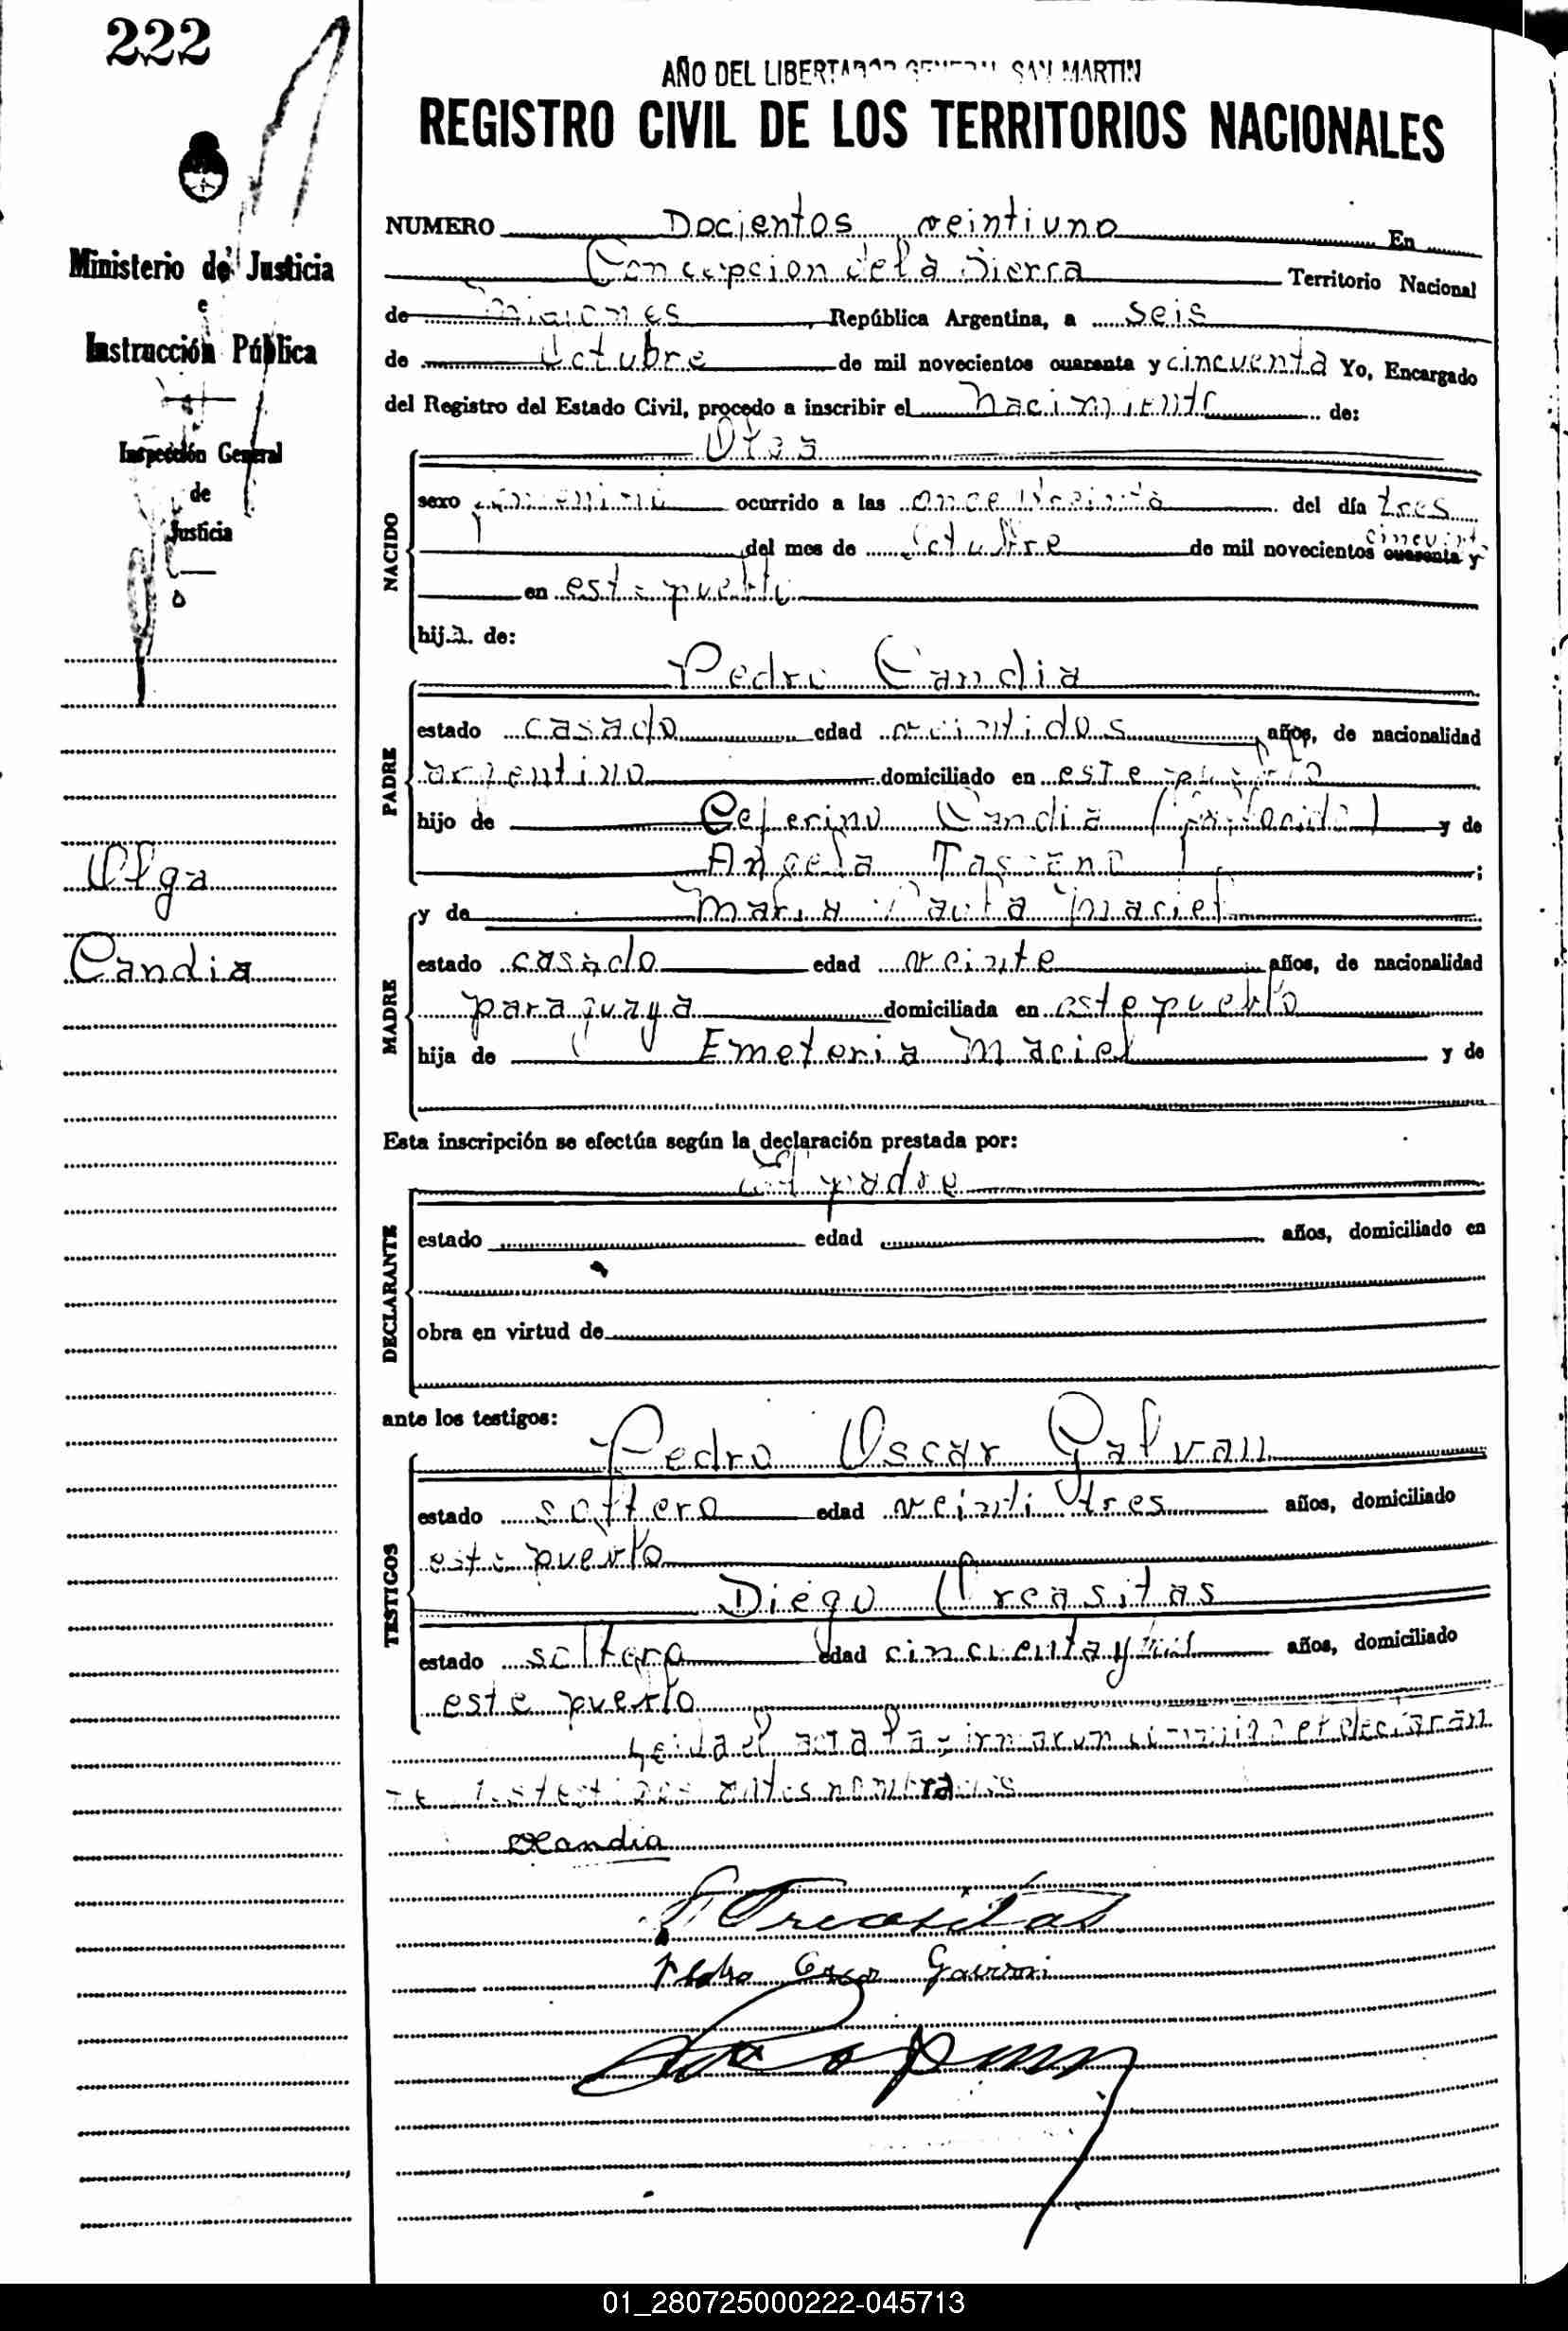 222
Ministerio de Justicia
e
Instrucción Pública
Inspección General
de
Justicia
Olga
Candia
AÑO DEL LIBERTADOR GENERAL SAN MARTIN
REGISTRO CIVIL DE LOS TERRITORIOS NACIONALES
NUMERO Docientos veintiuno En
Concepcion de la Sierra Territorio Nacional
de Misiones, República Argentina, a seis
de Octubre de mil novecientos cuarenta y cincuenta Yo, Encargado
del Registro del Estado Civil, procedo a inscribir el nacimiento de:
Olga
NACIDO
sexo femenino ocurrido a las once treinta del día tres
del mes de Octubre de mil novecientos cuarenta y cincuenta
en este pueblo
hija de:
Pedro Candia
PADRE
estado casado edad veintidos años, de nacionalidad
argentino domiciliado en este pueblo
hijo de Ceferino Candia (fallecido) y de
Angela
y de Maria Paula Maciel
MADRE
estado casado edad veinte años, de nacionalidad
paraguaya domiciliada en este pueblo
hija de Emeteria Maciel y de
Esta inscripción se efectúa según la declaración prestada por:
El padre
DECLARANTE
estado edad años, domiciliado en
obra en virtud de
ante los testigos:
Pedro Oscar Galvan
TESTIGOS
estado soltero edad veinti tres años, domiciliado
este pueblo
Diego Urcasitas
estado soltero edad cincuenta y años, domiciliado
este pueblo
Leida el acta la firmaron conmigo el declaran
te los testigos antes nombrados
Candia
Urcasitas
Pedro Oscar Galvan
01_280725000222-045713